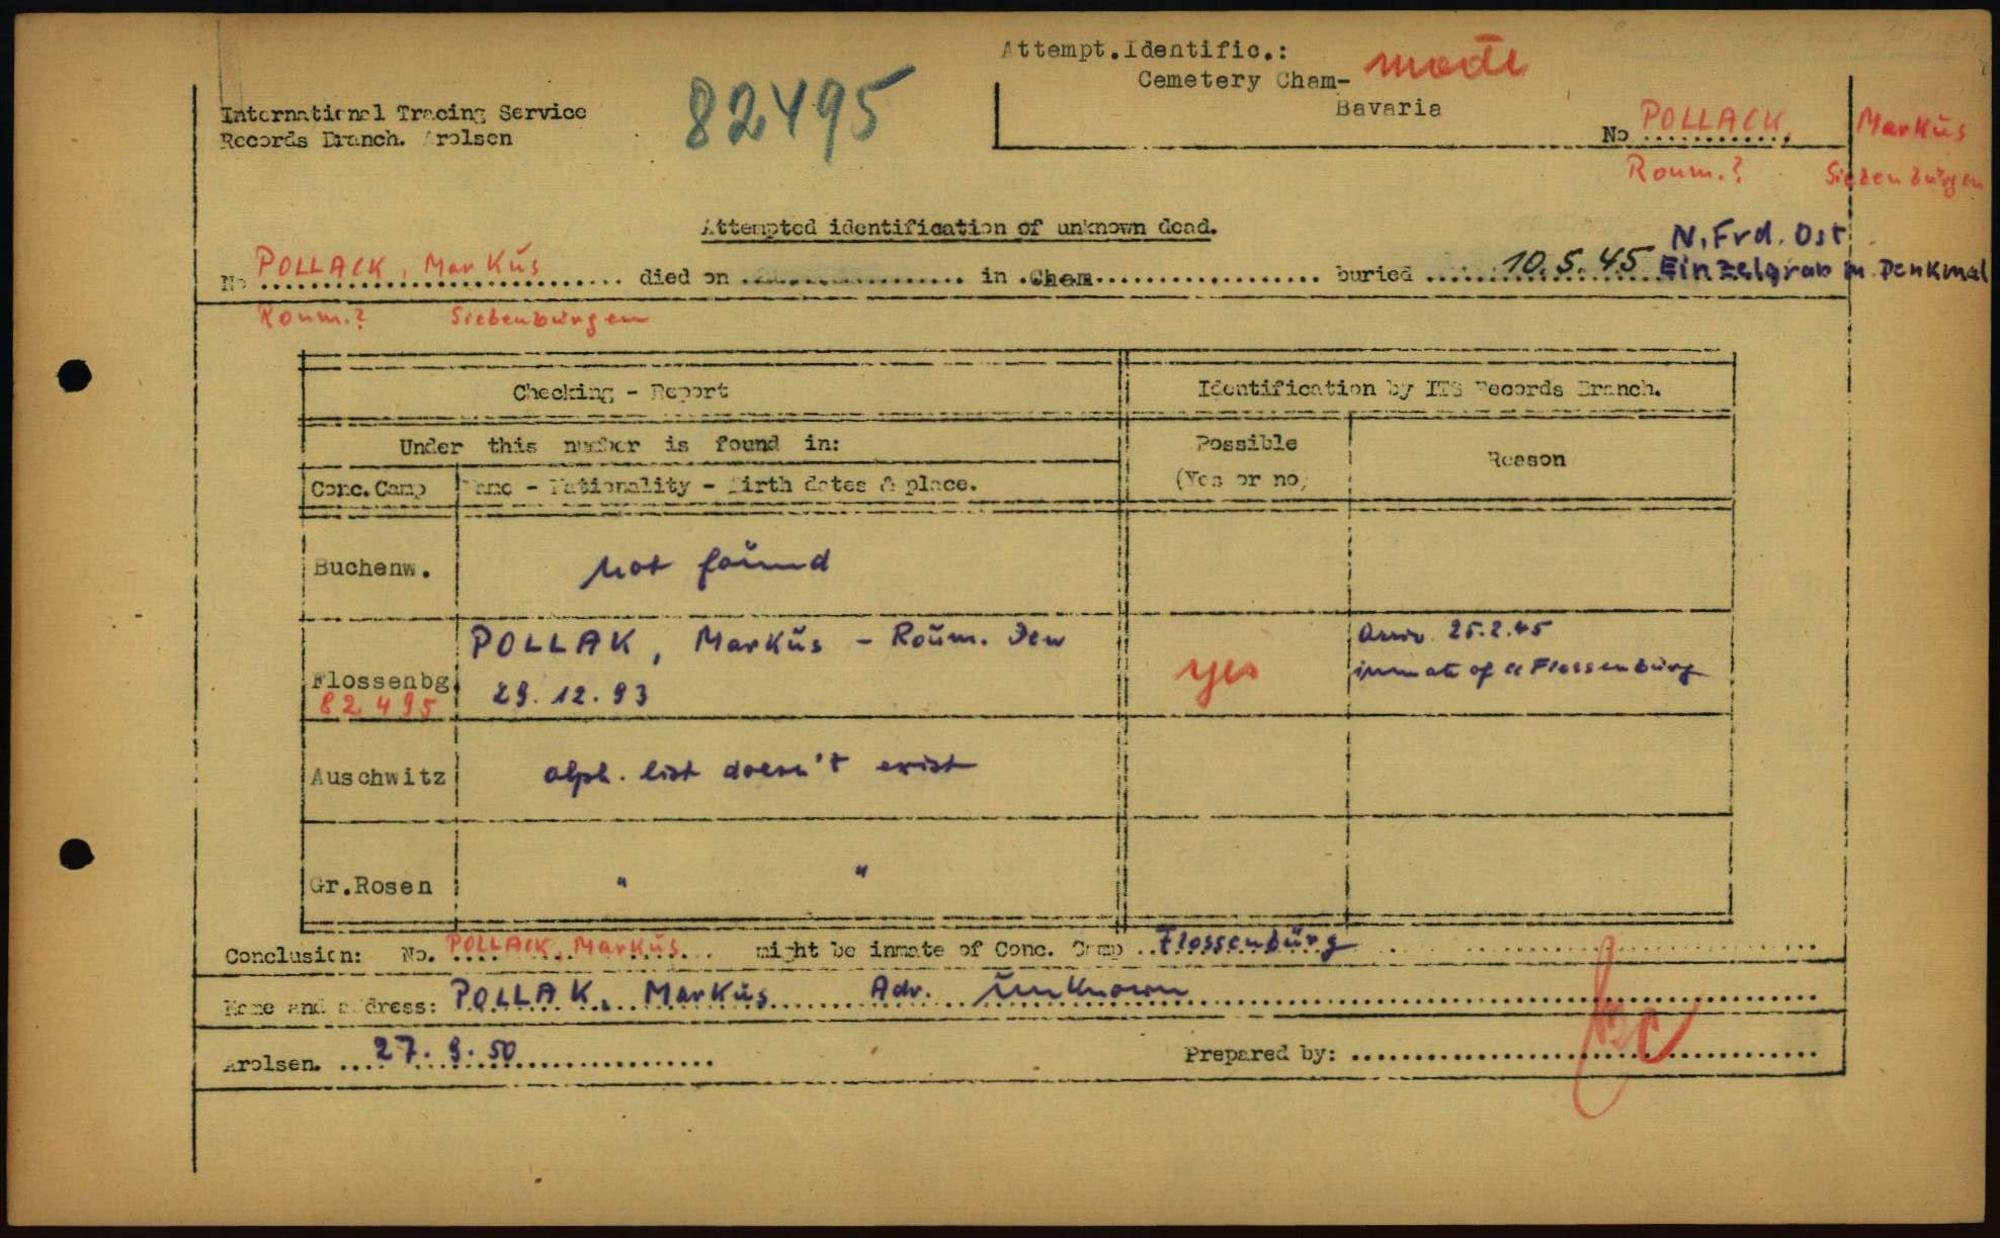 Attempt.Identific.:
Cemetery Cham-
Bavaria
International Tracing Service
Records Branch. Arolsen
82495
No POLLACK, Markus
Roum.? Siebenbürgen
Attempted identification of unknown dead.
N. Frd. Ost
No POLLACK, Markus died on in Cham buried 10.5.45 Einzelgrab m. Denkmal
Roum.? Siebenbürgen
Checking - Report Identification by ITS Records Branch.
Under this number is found in: Possible (Yes or no) Reason
Conc.Camp Name - Nationality - Birth dates & place.
Buchenw. not found
Flossenbg. 82495 POLLAK, Markus - Roum. Jew yes Arriv. 25.2.45
29.12.93 inmate of cc Flossenbürg
Auschwitz alph. list doesn't exist
Gr.Rosen " "
Conclusion: No. POLLACK, Markus might be inmate of Conc. Camp Flossenbürg
Name and address: POLLAK, Markus Adr. unknown
Arolsen. 27.9.50 Prepared by: